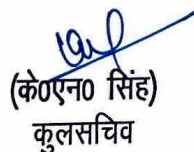 (के०एन० सिंह)
कुलसचिव